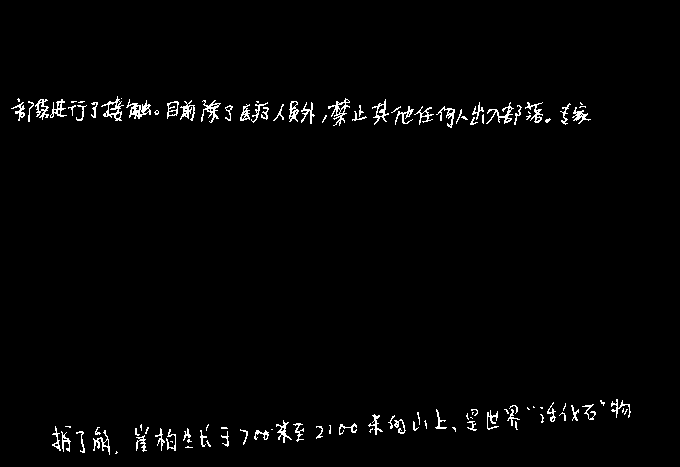 部落进行了接触。目前除了医疗人员外,禁止其他任何人出入部落。专家
据了解,崖柏生长于700米至2100米的山上,是世界“活化石”物